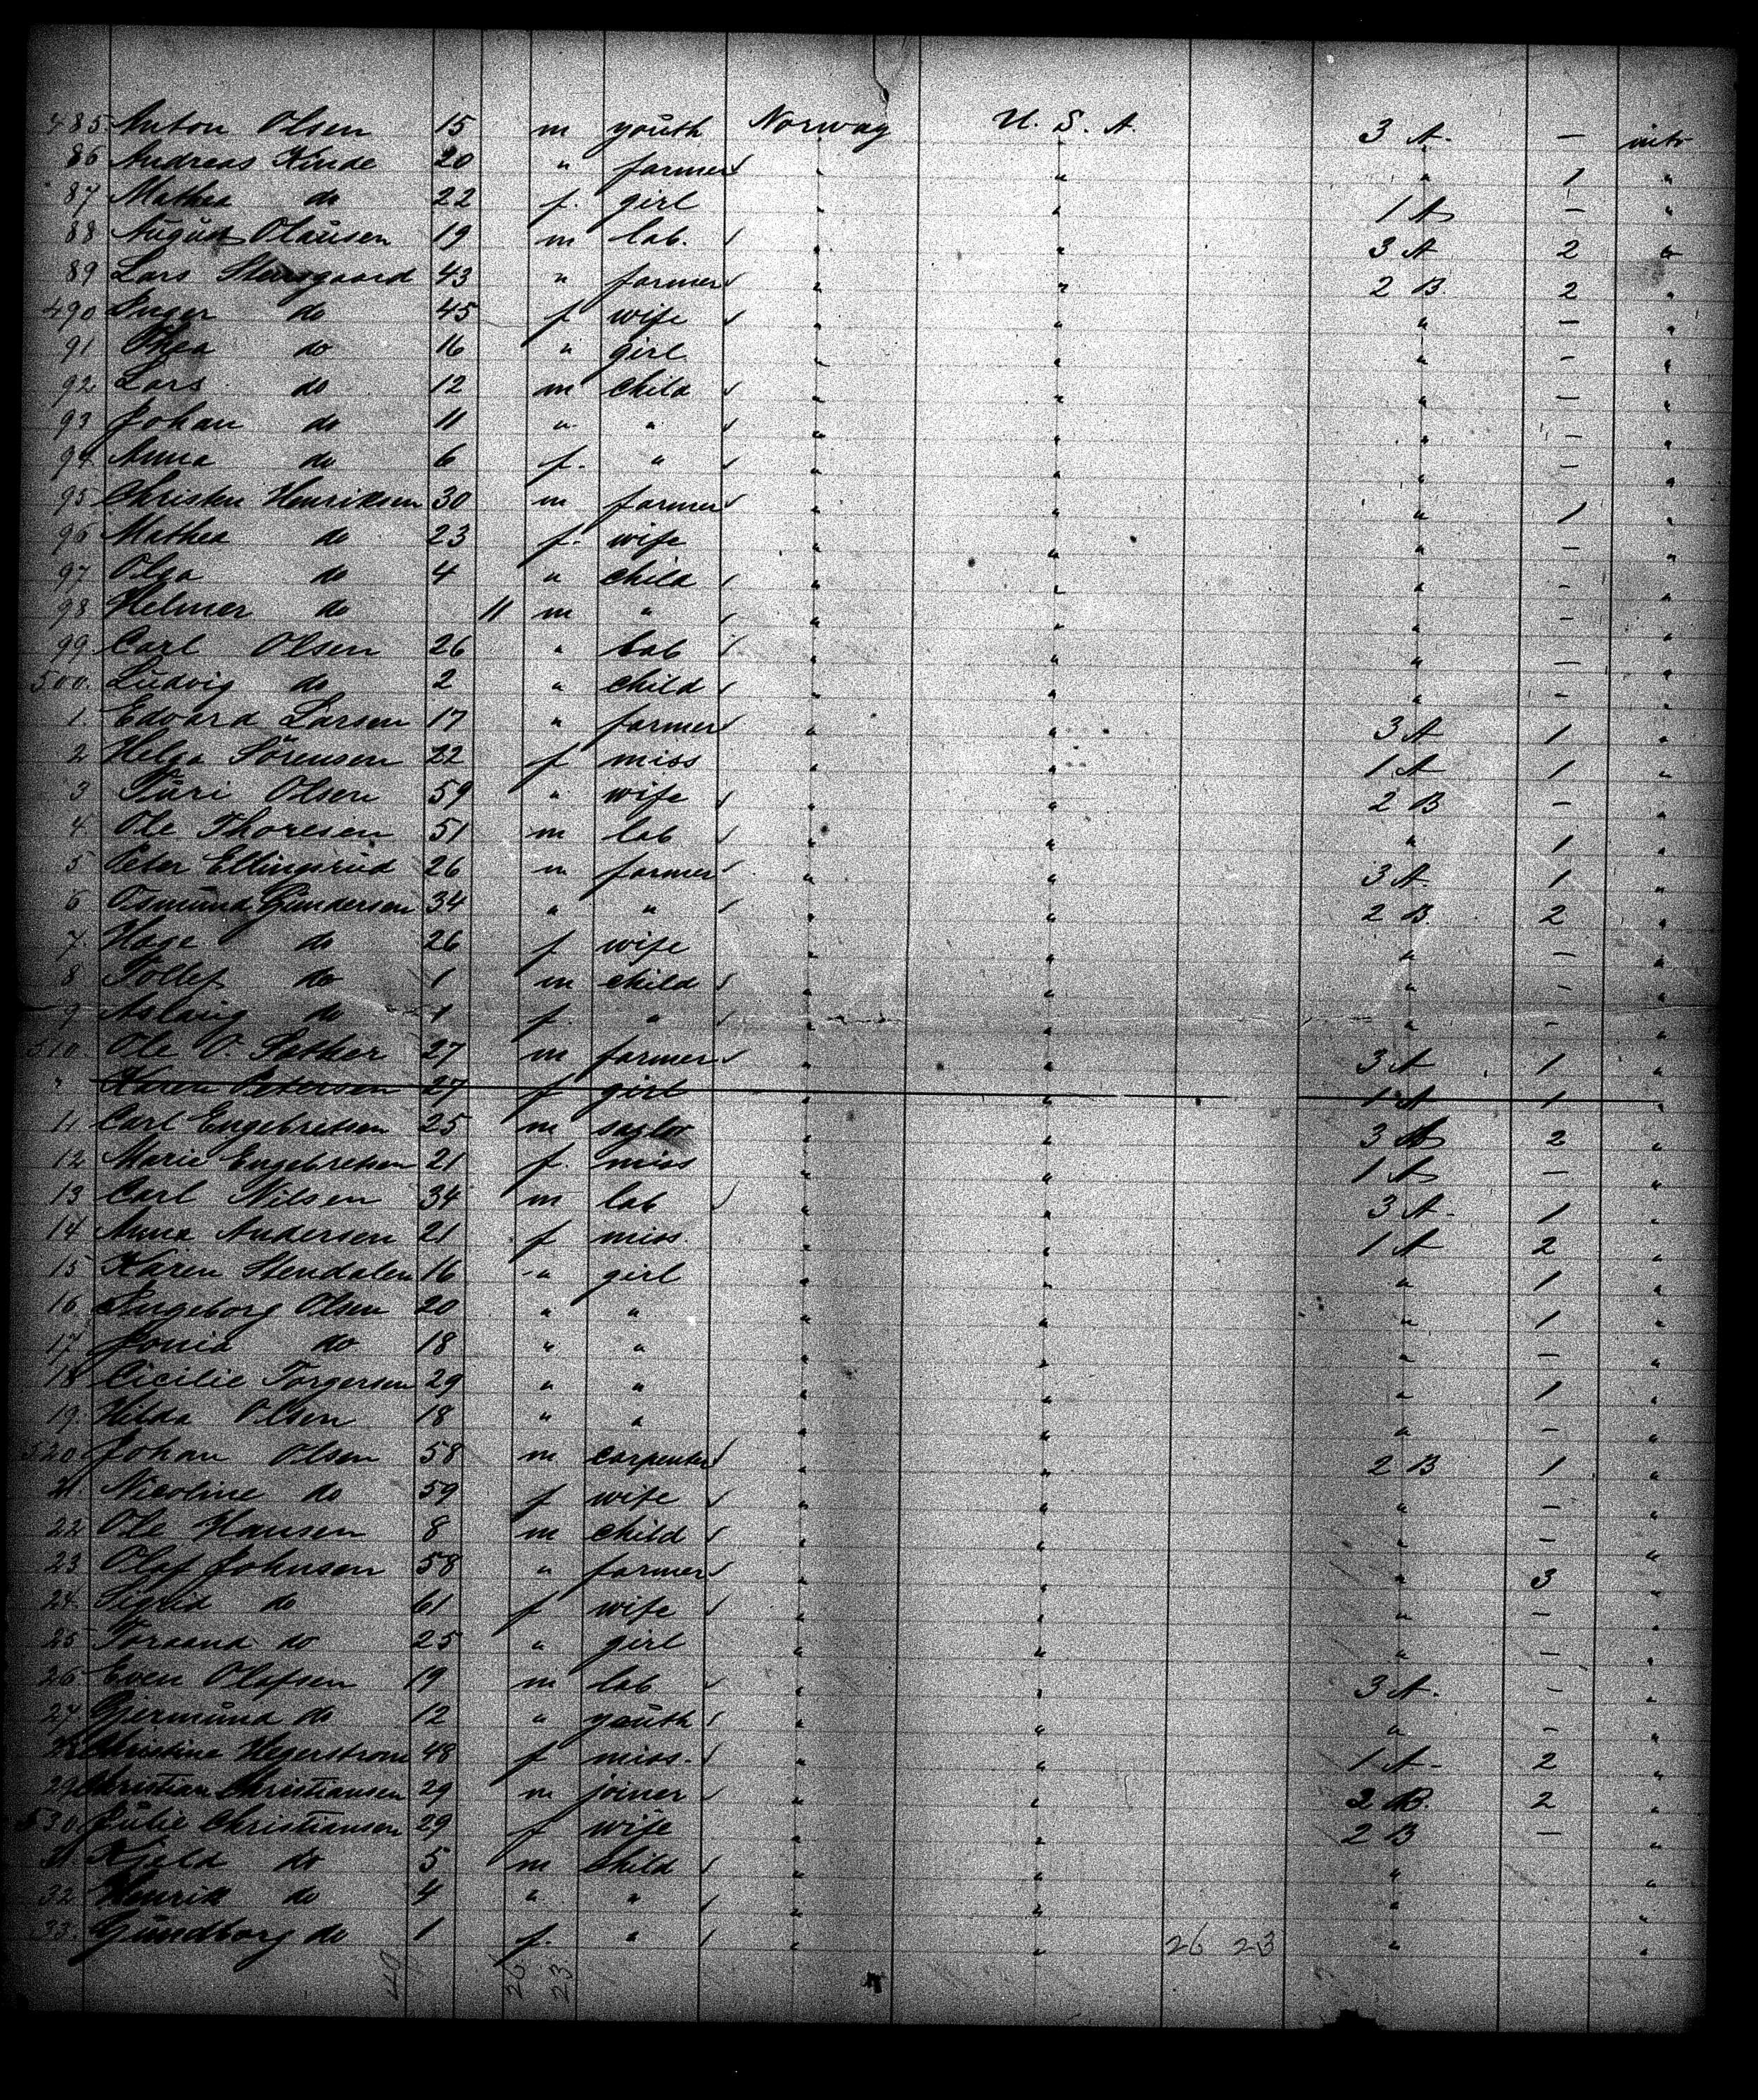 485. Anton Olsen 15 m youth Norway U. S. A. 3 A. — intr
86 Andreas Hinde 20 " farmer " " " 1 "
87 Mathea do 22 f. girl " " 1 A — "
88 August Olausen 19 m lab. " " 3 A 2 "
89 Lars 43 " farmer " " 2 B. 2 "
490 Inger do 45 f wife " " " — "
91 Thea do 16 " girl " " " — "
92 Lars do 12 m child " " " — "
93 Johan do 11 " " " " " — "
94 Anna do 6 f. " " " " — "
95 Christen Henriksen 30 m farmer " " " 1 "
96 Mathea do 23 f. wife " " " — "
97 Olga do 4 " child " " " — "
98 Helmer do 11 m " " " " — "
99 Carl Olsen 26 " lab " " " — "
500. Ludvig do 2 " child " " " — "
1. Edvard Larsen 17 " farmer " " 3 A 1 "
2 Helga Sörensen 22 f miss " " 1 A 1 "
3 Turi Olsen 59 " wife " " 2 B — "
4. Ole Thoresen 51 m lab " " " 1 "
5 Peter Ellingsrud 26 m farmer " " 3 A. 1 "
6 Osmund Gundersen 34 " " " " 2 B. 2 "
7. Hage do 26 f wife " " " — "
8 Tollef do 1 m child " " " — "
9 Aslaug do 1 f. " " " " — "
510. Ole O. Sather 27 m farmer " " 3 A 1 "
" Karen Petersen 27 f girl " " 1 A 1 "
11 Carl Engebretsen 25 m saylor " " 3 A 2 "
12 Marie Engebretsen 21 f. miss " " 1 A — "
13 Carl Nilsen 34 m lab " " 3 A. 1 "
14 Anna Andersen 21 f miss. " " 1 A 2 "
15 Karen Stendalen 16 " girl " " " 1 "
16. Ingeborg Olsen 20 " " " " " 1 "
17. do 18 " " " " " — "
18 Cicilie Torgersen 29 " " " " " 1 "
19. Hilda Olsen 18 " " " " " — "
520. Johan Olsen 58 m carpenter " " 2 B 1 "
21 Nicoline do 59 f wife " " " — "
22 Ole Hansen 8 m child " " " — "
23 Olaf Johnsen 58 " farmer " " " 3 "
24. Sigrid do 61 f wife " " " — "
25 do 25 " girl " " " — "
26 Even Olafsen 19 m lab " " 3 A. — "
27 Gjermund do 12 " youth " " " — "
28 Christine Hegerstrom 48 f miss. " " 1 A. 2 "
29 Christian Christiansen 29 m joiner " " 2 B. 2 "
530. Julie Christiansen 29 f wife " " 2 B — "
31. Kjeld do 5 m child " " " "
32 Henrik do 4 " " " " " "
33. Gundborg do 1 f. " " " 26 23 " "
40 26 23